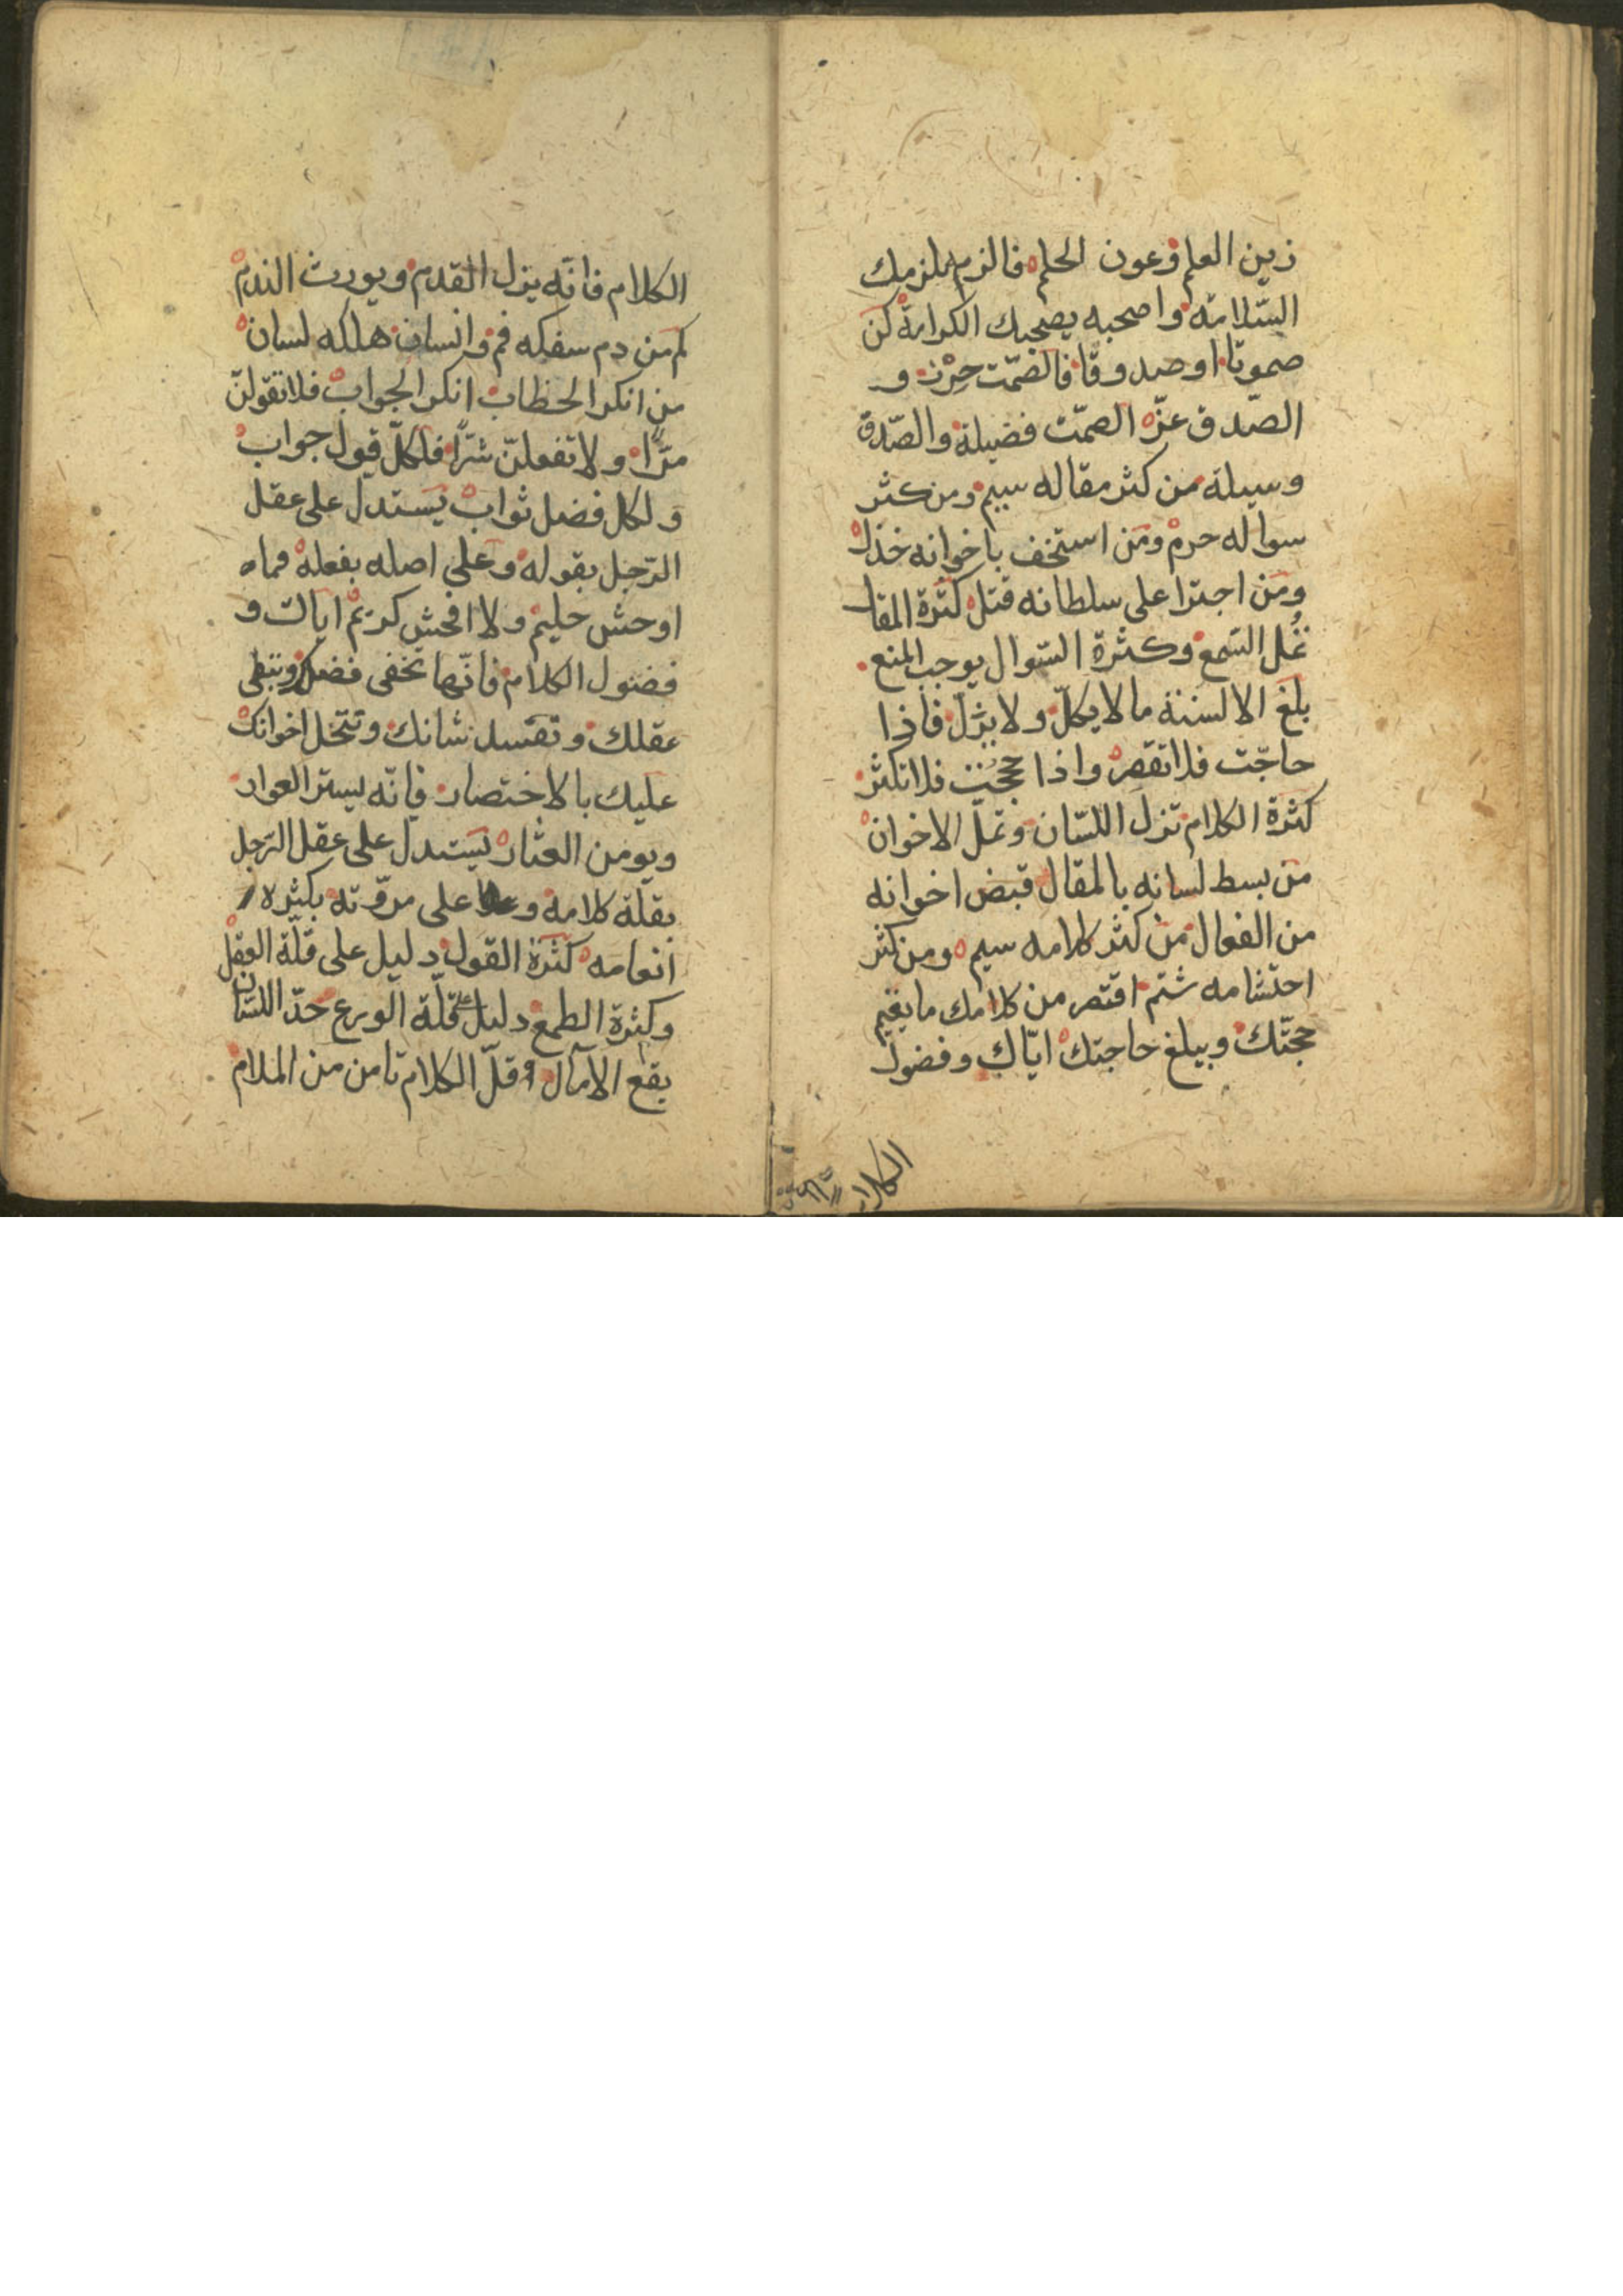 زين العلم وعون الحلم فالزم يلزمك
السّلامة واصحبه يصحبك الكرامة كن
صموتا او صدوقا فالصّمت حِرْز و
الصّدق عزّ الصمّت فضيلة والصّدق
وسيلة من كثر مقاله سيم ومن كثر
سواله حرم ومن استخف باخوانه خذل
ومن اجترا على سلطانه قتل كثرة المقال
تمُل السّمع وكثرة السّوال يوجب المنع
بلغ الالسنة ما لا يكلّ ولا يزلّ فاذا
حاجّت فلا تقصر واذا حججْت فلا تكثر
كثرة الكلام تزل اللسّان وتملّ الاخوان
من بسط لسانه بالمقال قبض اخوانه
من الفعال من كثر كلامه سيم ومن كثر
احتشامه شتم اقتصر من كلامك ما يقيم
حجّتك ويبلغ حاجتك ايّاك وفضول
الكلام
الكلام فانّه يزل القدم ويورث الندم
كم من دم سفكه فم وانسان هلكه لسان
من انكر الخطاب انكر الجواب فلا تقولنّ
مرّا ولا تفعلنّ شرّا فلكلّ قول جواب
ولكل فضل ثواب يستدل على عقل
الرّجل بقوله وعلى اصله بفعله فما
اوحش حليم ولا افحش كريم اياك و
فضول الكلام فانّها تخفى فضلك وتنفى
عقلك وتفسد شانك وتتخل اخوانك
عليك بالاختصار فانّه يستر العوار
ويومن العثار يستدل على عقل الرّجل
بقلّة كلامه و على مروّته بكثرة
انعامه كثرة القول دليل على قلّة العقل
وكثرة الطمع دليل على قلّة الورع حدّ اللسّان
يقع الآمال وقلّ الكلام تامن من الملام